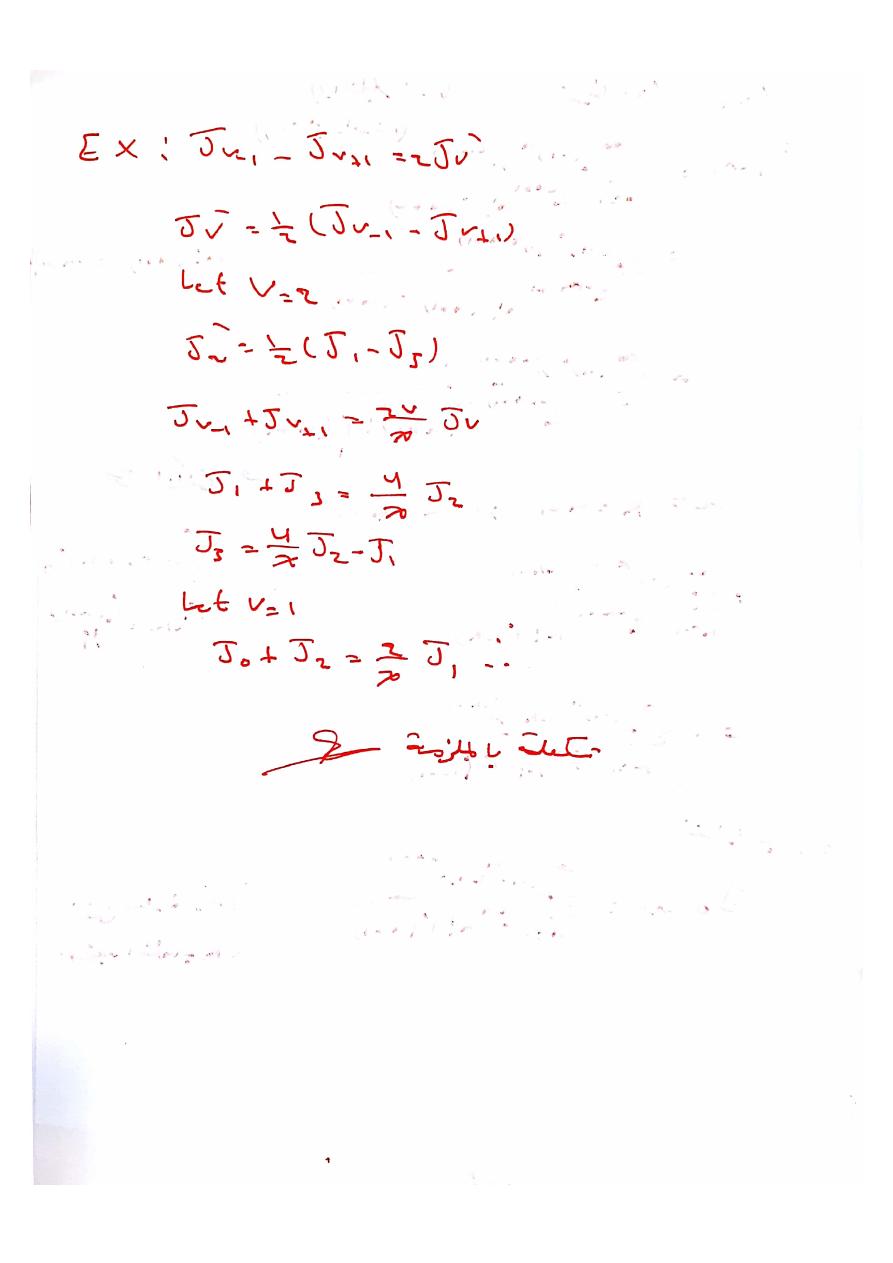 EX : Jv-1 - Jv+1 = 2Jv'
Jv' = 1/2 (Jv-1 - Jv+1)
Let V=2
J2' = 1/2 (J1 - J3)
Jv-1 + Jv+1 = 2v/x Jv
J1 + J3 = 4/x J2
J3 = 4/x J2 - J1
Let v=1
J0 + J2 = 2/x J1 ∴
بالملزمة
1